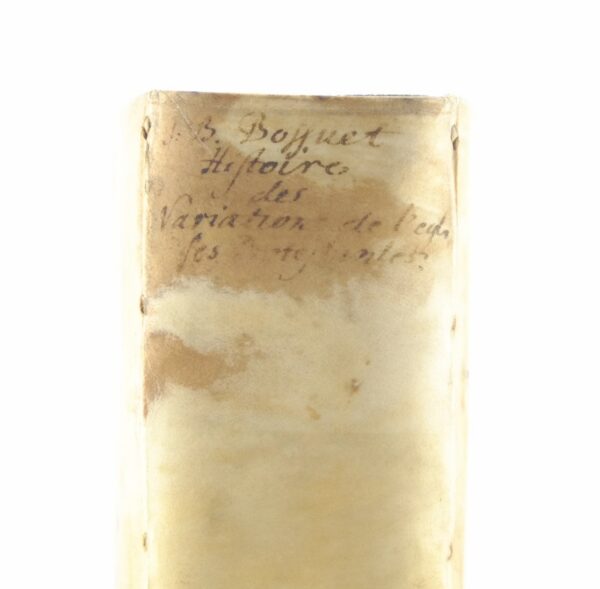 J. B. Boſſuet
Hiſtoire
des
Variations de l'egli
ſes Proteſtantes.